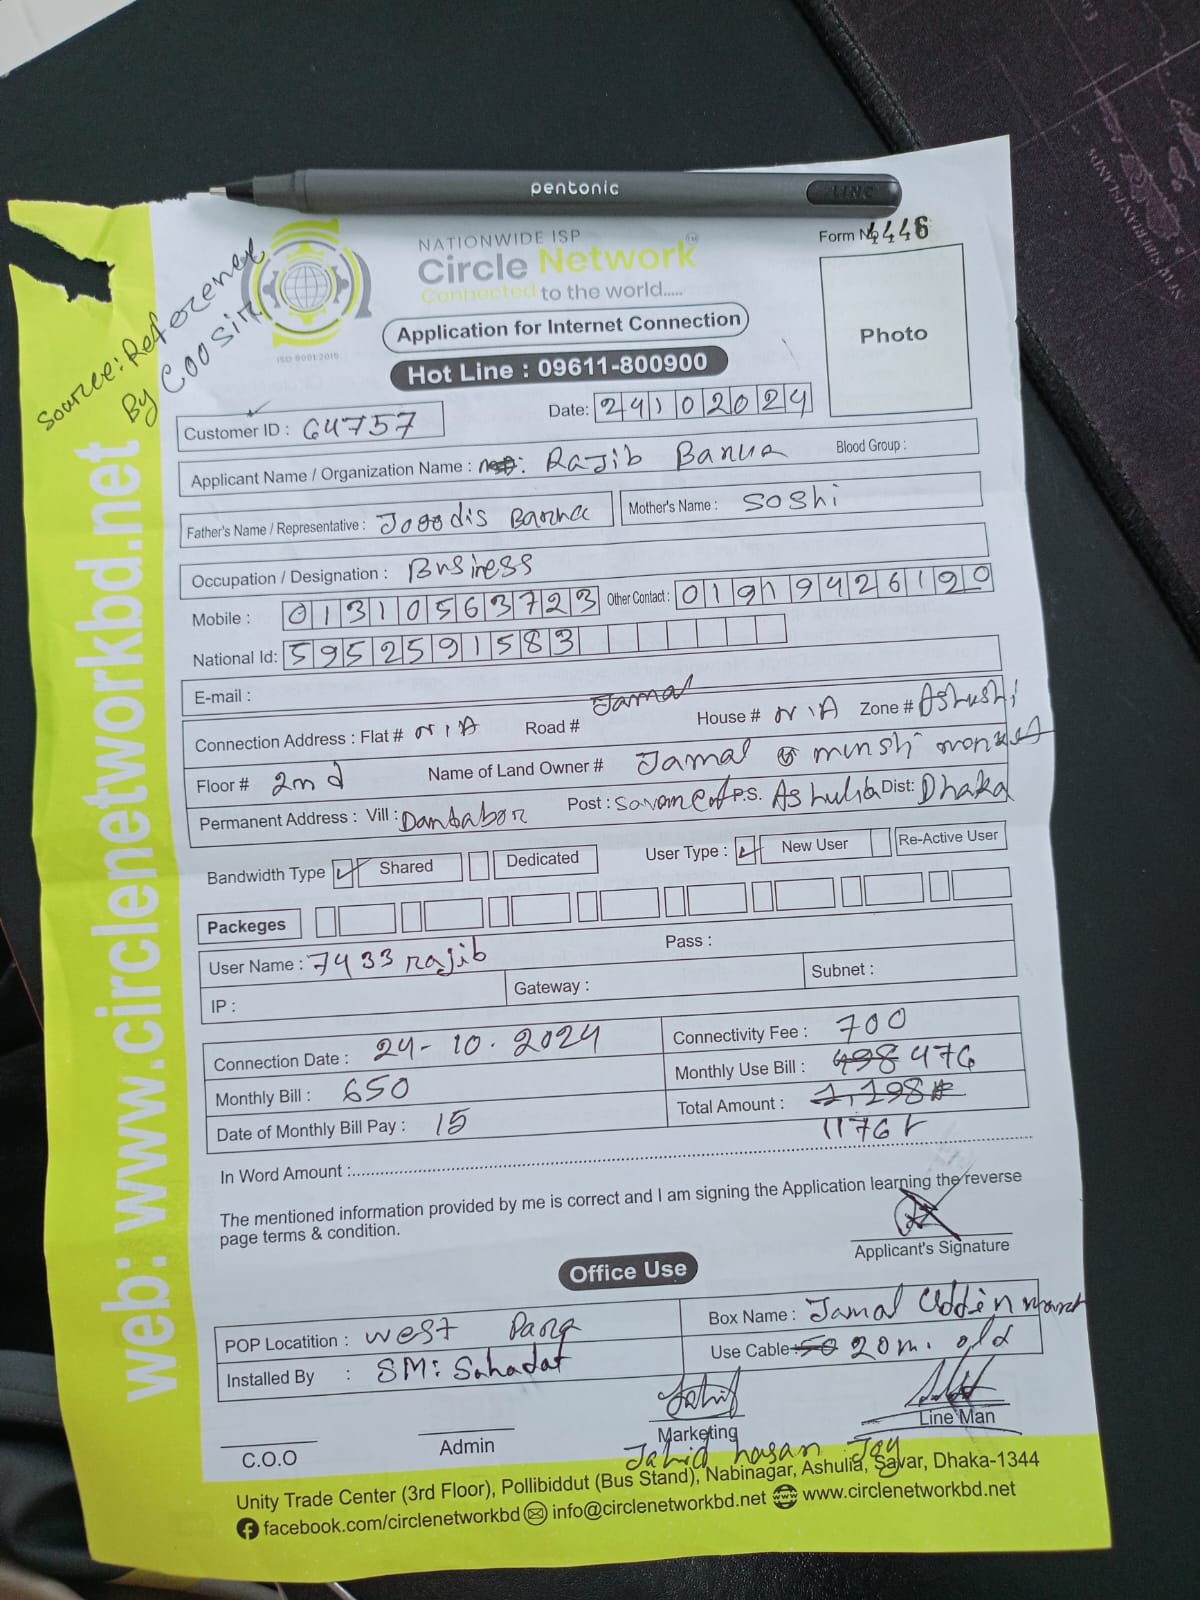 pentonic
LINC
Source: Reference
By COO Sir
NATIONWIDE ISP
Circle Network
Connected to the world.....
ISO 9001:2015
Form No 4446
Photo
Application for Internet Connection
Hot Line : 09611-800900
Date: 24102024
Customer ID : 64757
Applicant Name / Organization Name : Rajib Barua Blood Group :
Father's Name / Representative : Jogodis Barua Mother's Name : Soshi
Occupation / Designation : Business
Mobile : 01310563723 Other Contact : 01919426120
National Id: 5952591583
E-mail :
Connection Address : Flat # N/A Road # Jamal House # N/A Zone #
Floor # 2nd Name of Land Owner # Jamal munshi market
Permanent Address : Vill : Post : P.S. Ashulia Dist: Dhaka
Bandwidth Type Shared Dedicated User Type : New User Re-Active User
Packeges
User Name : 7433rajib Pass :
IP : Gateway : Subnet :
Connection Date : 24-10.2024 Connectivity Fee : 700
Monthly Bill : 650 Monthly Use Bill : 498 476
Date of Monthly Bill Pay : 15 Total Amount : 1,198
1176
In Word Amount :
The mentioned information provided by me is correct and I am signing the Application learning the reverse
page terms & condition.
Applicant's Signature
Office Use
POP Locatition : West Para Box Name : Jamal Uddin
Installed By : SM: Sahadat Use Cable : 50 20m. old
C.O.O Admin Marketing Line Man
Jahid hasan Joy
Unity Trade Center (3rd Floor), Pollibiddut (Bus Stand), Nabinagar, Ashulia, Savar, Dhaka-1344
facebook.com/circlenetworkbd info@circlenetworkbd.net www.circlenetworkbd.net
web: www.circlenetworkbd.net